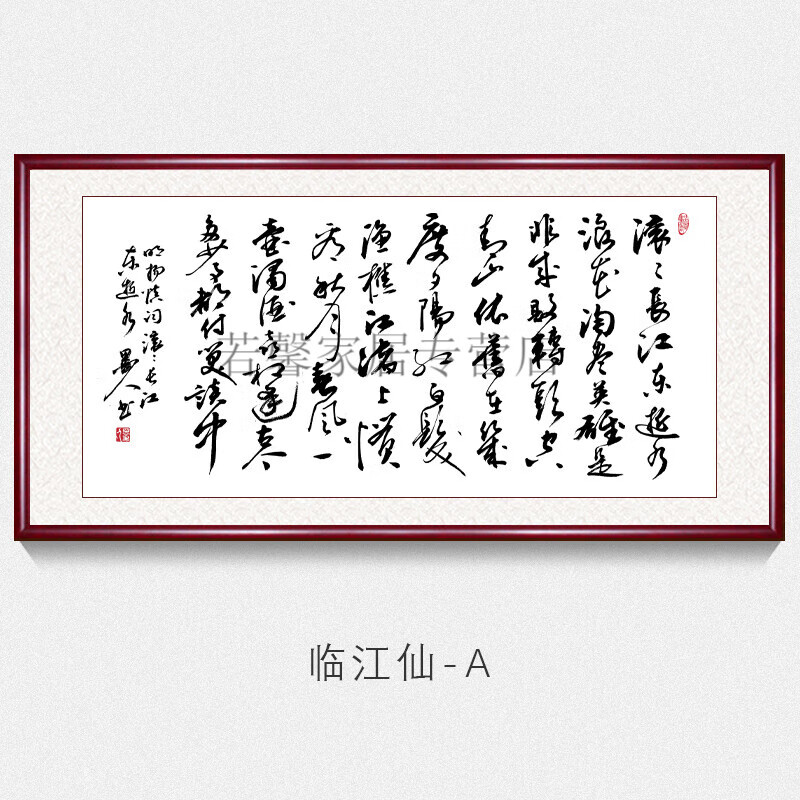 滚々長江东逝水
浪花淘尽英雄是
非成敗轉頭空
青山依舊在幾
度夕陽红白髮
渔樵江渚上惯
看秋月春风一
壶濁酒喜相逢古今
多少事都付笑談中
明杨慎词滚々长江
东逝水 墨人书
若馨家居专营店
临江仙-A